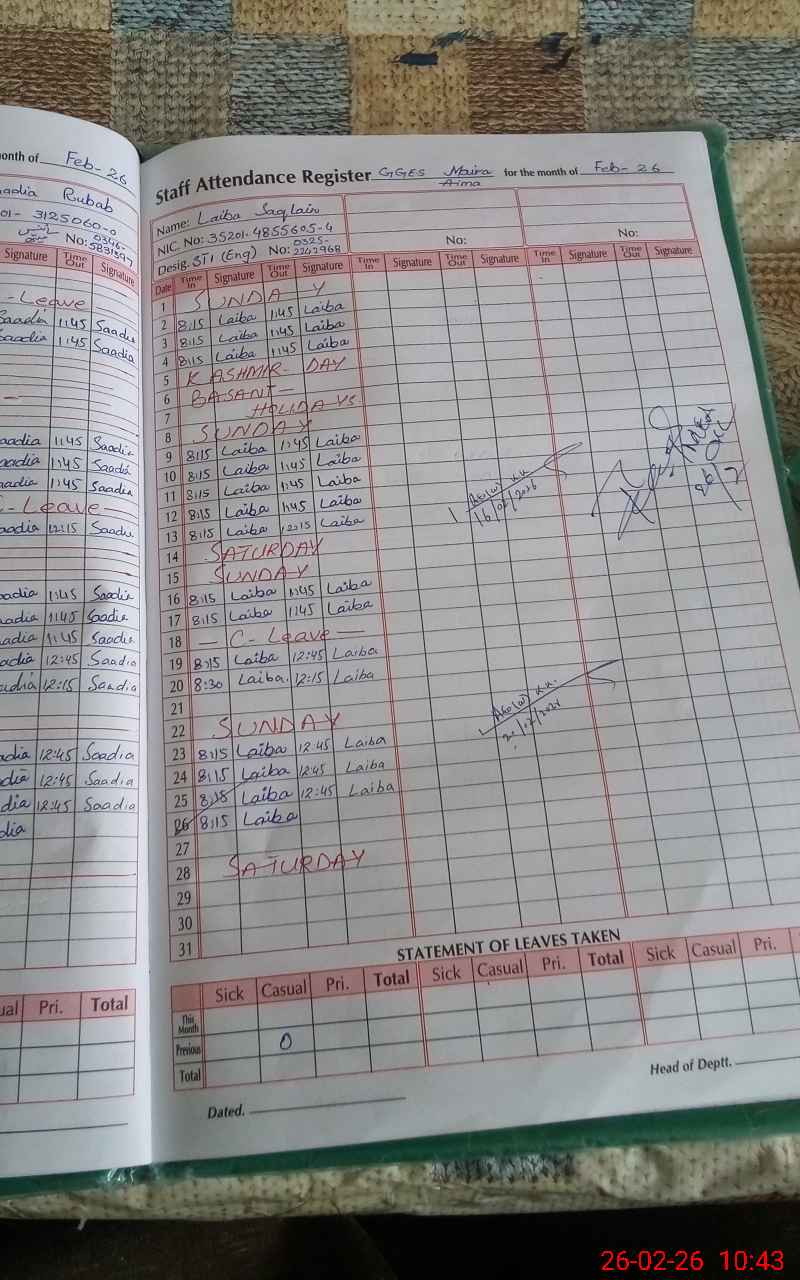 onth of Feb-26
aadia Rubab
01- 3125060-0
No: 0346-5831597
Signature Time Out Signature
-Leave
Saadia 1:45 Saadia
Saadia 1:45 Saadia
aadia 1:45 Saadia
aadia 1:45 Saadia
aadia 1:45 Saadia
C-Leave
aadia 12:15 Saadia
aadia 1:45 Saadia
adia 1:45 Saadia
adia 1:45 Saadia
adia 12:45 Saadia
adia 12:15 Saadia
adia 12:45 Saadia
dia 12:45 Saadia
dia 12:45 Saadia
dia
ual Pri. Total
Staff Attendance Register GGES Maira Aima for the month of Feb-26
Name: Laiba Saqlain
NIC. No: 35201-4855605-4 No: No:
Desig. STI (Eng) No: 0325-2242968
Date Time In Signature Time Out Signature Time In Signature Time Out Signature Time In Signature Time Out Signature
1 SUNDAY
2 8:15 Laiba 1:45 Laiba
3 8:15 Laiba 1:45 Laiba
4 8:15 Laiba 1:45 Laiba
5 KASHMIR DAY
6 BASANT-
7 HOLIDAYS
8 SUNDAY
9 8:15 Laiba 1:45 Laiba
10 8:15 Laiba 1:45 Laiba
11 8:15 Laiba 1:45 Laiba
12 8:15 Laiba 1:45 Laiba
13 8:15 Laiba 12:15 Laiba
14 SATURDAY
15 SUNDAY
16 8:15 Laiba 1:45 Laiba
17 8:15 Laiba 1:45 Laiba
18 — C-Leave —
19 8:15 Laiba 12:45 Laiba
20 8:30 Laiba. 12:15 Laiba
21
22 SUNDAY
23 8:15 Laiba 12:45 Laiba
24 8:15 Laiba 12:45 Laiba
25 8:15 Laiba 12:45 Laiba
26 8:15 Laiba
27
28 SATURDAY
29
30
31
16/02/2026
STATEMENT OF LEAVES TAKEN
Sick Casual Pri. Total Sick Casual Pri. Total Sick Casual Pri.
This Month
Previous 0
Total
Dated.
Head of Deptt.
26-02-26 10:43